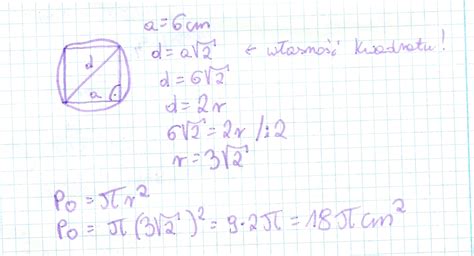 a = 6cm
d = a√2 ← własność kwadratu!
d = 6√2
d = 2r
6√2 = 2r /:2
r = 3√2
d
a
P₀ = πr²
P₀ = π(3√2)² = 9·2π = 18π cm²